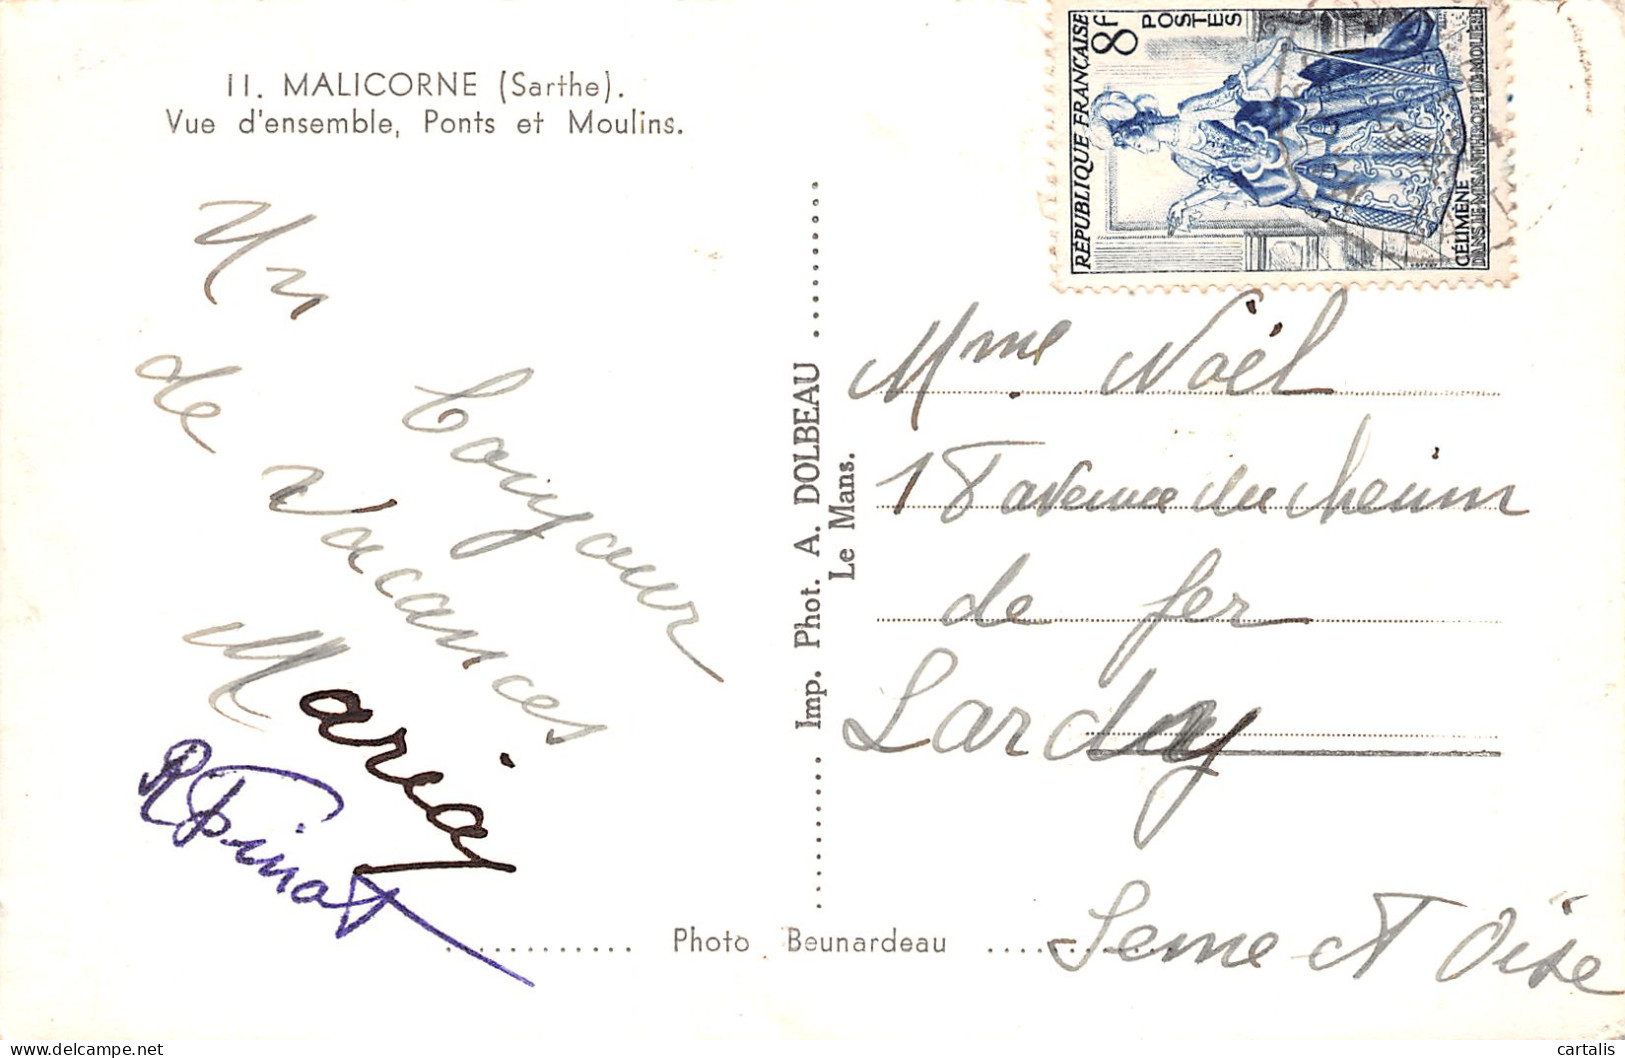 11. MALICORNE (Sarthe).
Vue d'ensemble, Ponts et Moulins.
Un
Bonjour
de
Vacances
Maria
R Pinot
Imp. Phot. A. DOLBEAU
Le Mans.
Photo Beunardeau
RÉPUBLIQUE FRANÇAISE
8f
POSTES
CÉLIMÈNE
DANS LE MISANTHROPE DE MOLIÈRE
Mme Noël
1 avenue du Chemin
de fer
Lardy
Seine et Oise
cartalis